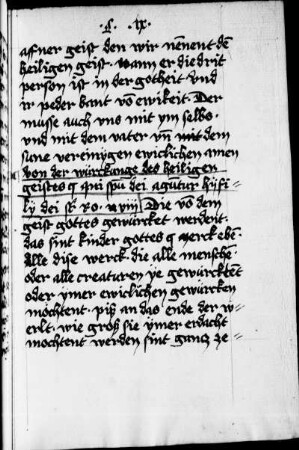 · f · ix ·
af ner geist den wir nēnent dē
heiligen geist · wann er die drit
person ist in der gotheit vnd
ir peder bant vō ewikeit · Der
musse auch vns mit ym selbs ·
vnd mit dem vater vn̄ mit dem
sune vereinygen ewiclichen amen
Von der würckunge des heiligen
geistes q qui spū dei agūtur hij fi-
lij dei sr̄ ro · viij Die vō dem
geist gottes gewürcket werdent ·
das sint kinder gottes q merck ebē
Alle dise werck die alle menschē
oder alle creaturen ye gewürcktēt
oder ymer ewiclichen gewürcken
möchtent · piß an das ende der w-
erlt · wie groß sie ymer erdacht
möchtent werden sint gancz ze-